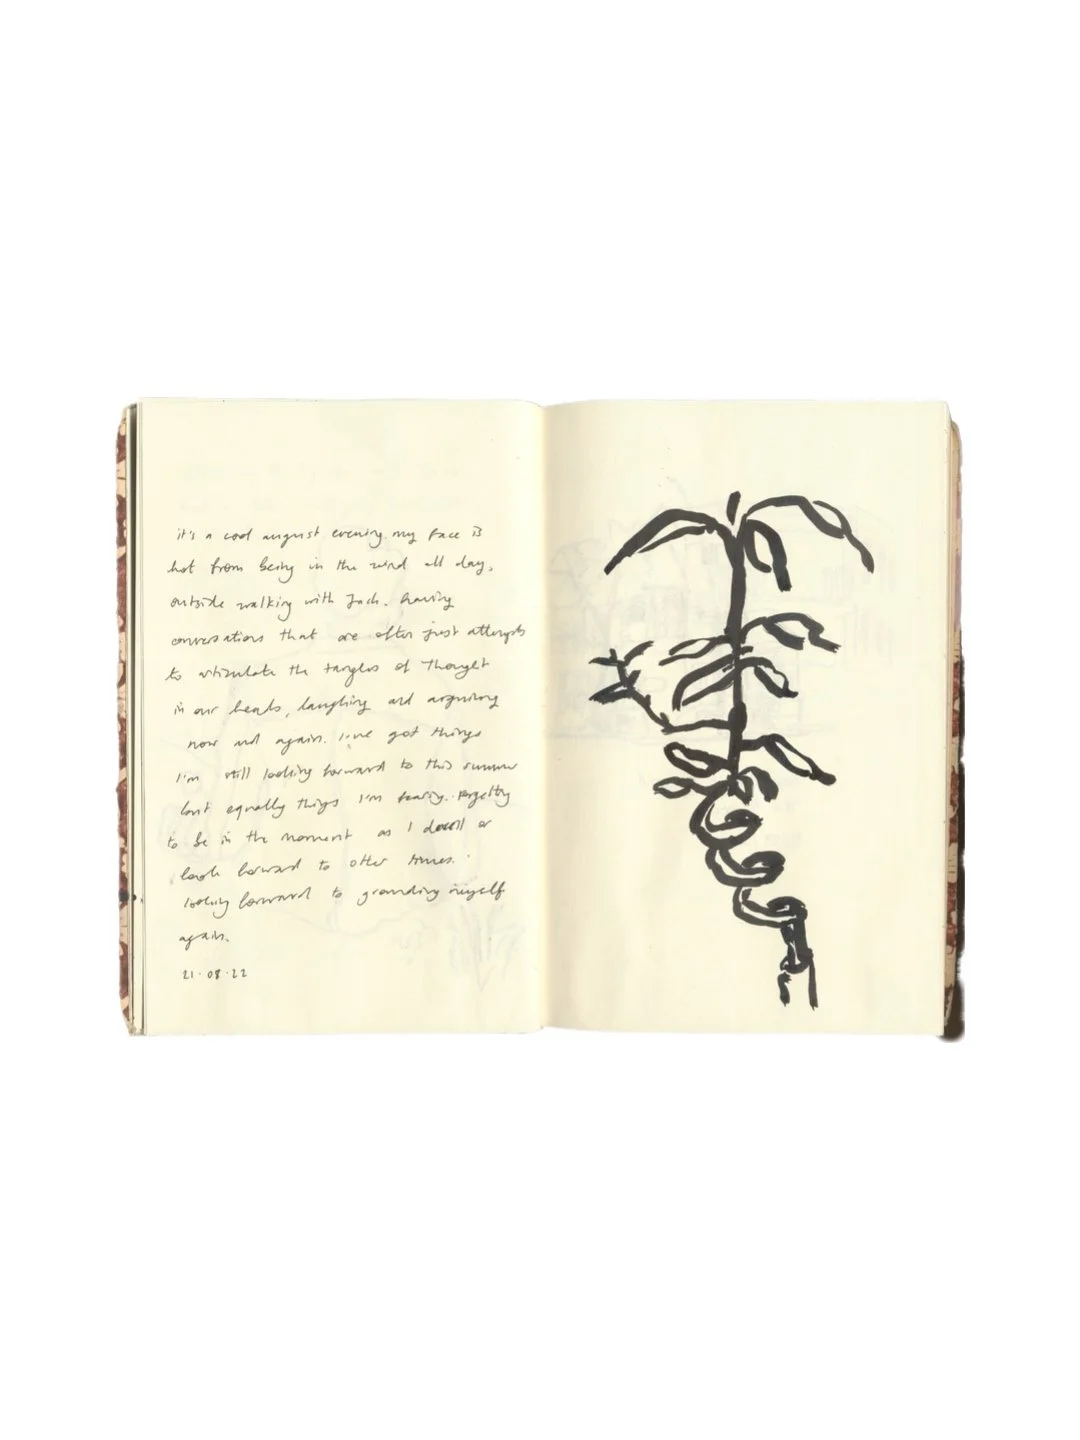 it's a cool august evening. my face is
hot from being in the wind all day,
outside walking with Jack. having
conversations that are often just attempts
to articulate the tangles of thought
in our heads, laughing and arguing
now and again. i've got things
I'm still looking forward to this summer
but equally things I'm fearing. forgetting
to be in the moment as I dwell or
look forward to other times.
looking forward to grounding myself
again.
21.08.22